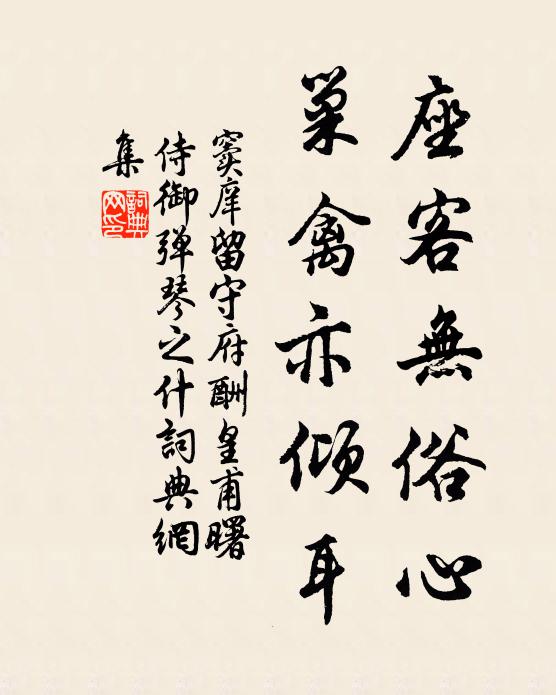 座客無俗心
巢禽亦傾耳
竇庠留守府酬皇甫曙
侍御彈琴之什詞典網
集
詞典
网印